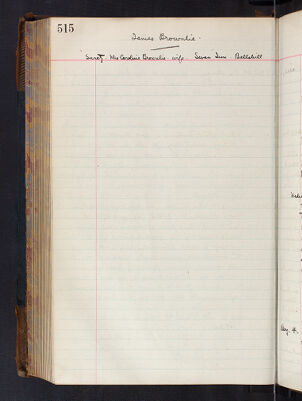 515
James Brownlie.
Surety. Mrs Caroline Brownlie. wife. Swan Inn Bellshill
Aug. 4.